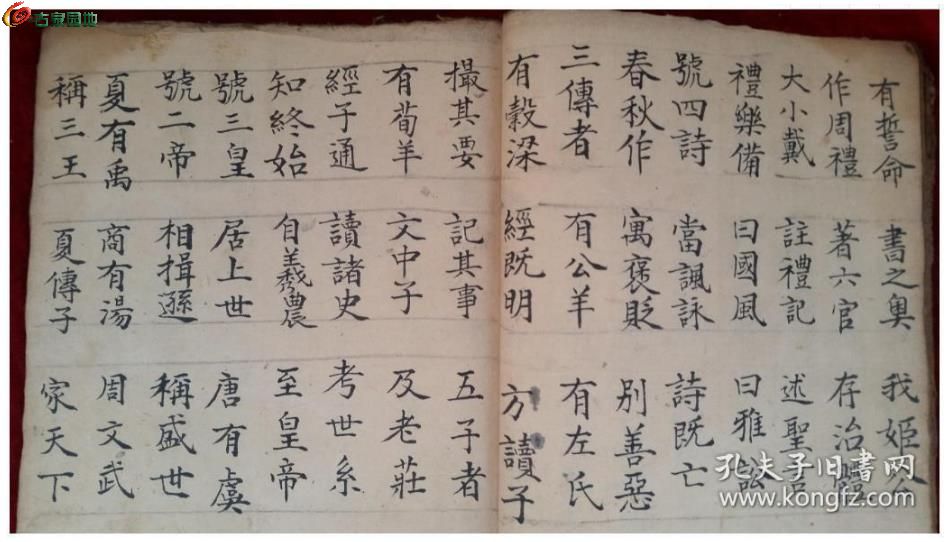 古泉园地
有誓命 書之奥 我姬公
作周禮 著六官 存治體
大小戴 註禮記 述聖言
禮樂備 曰國風 曰雅訟
號四詩 當諷詠 詩既亡
春秋作 寓褒貶 別善惡
三傳者 有公羊 有左氏
有穀梁 經既明 方讀子
撮其要 記其事 五子者
有荀羊 文中子 及老莊
經子通 讀諸史 考世系
知終始 自羲農 至皇帝
號三皇 居上世 唐有虞
號二帝 相揖遜 稱盛世
夏有禹 商有湯 周文武
稱三王 夏傳子 家天下
孔夫子旧書网
www.kongfz.com